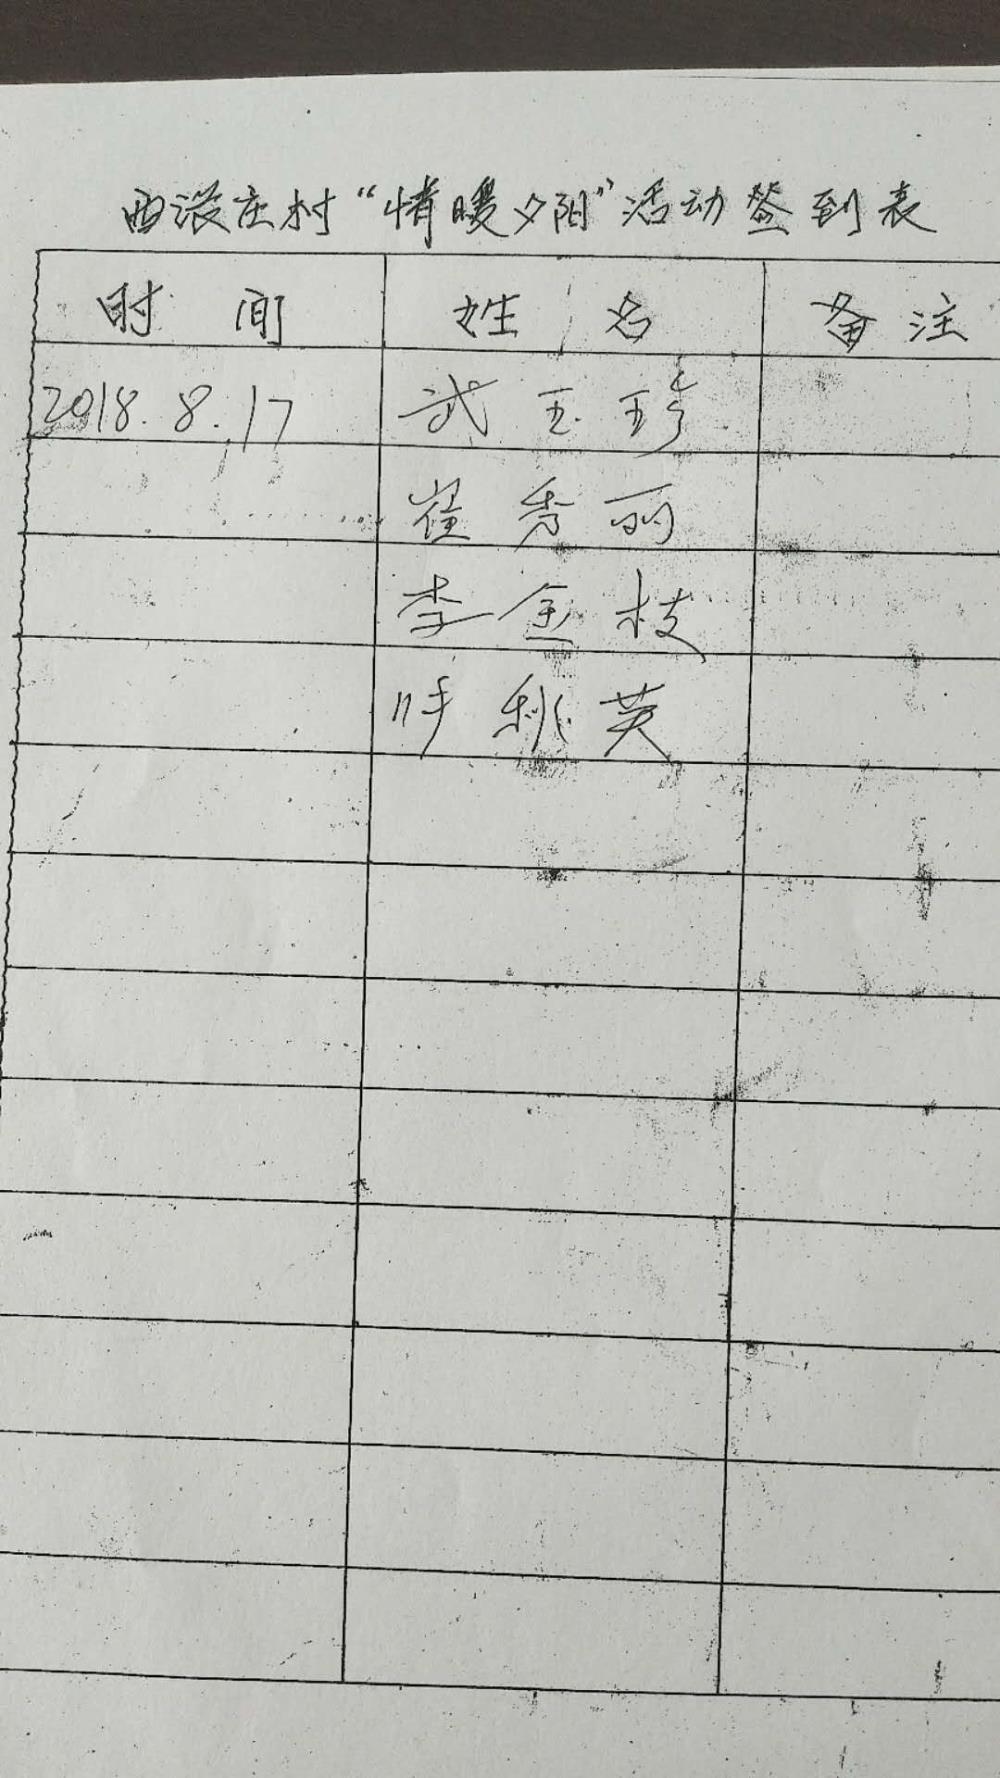 西滚庄村“情暖夕阳”活动签到表
时间 姓名 备注
2018.8.17 武玉珍
崔秀丽
李金枝
呼秋英